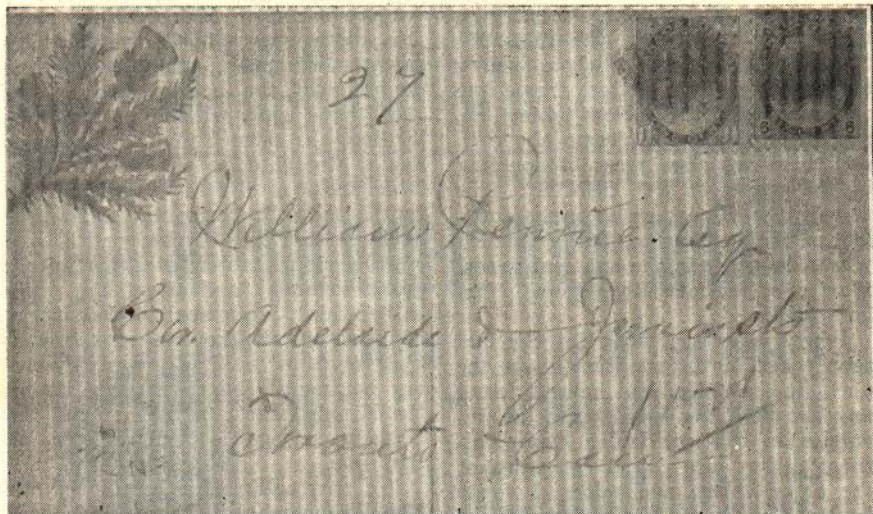 27
William Rennie. Esq
Cor. Adelaide & Jarvis sts
Toronto